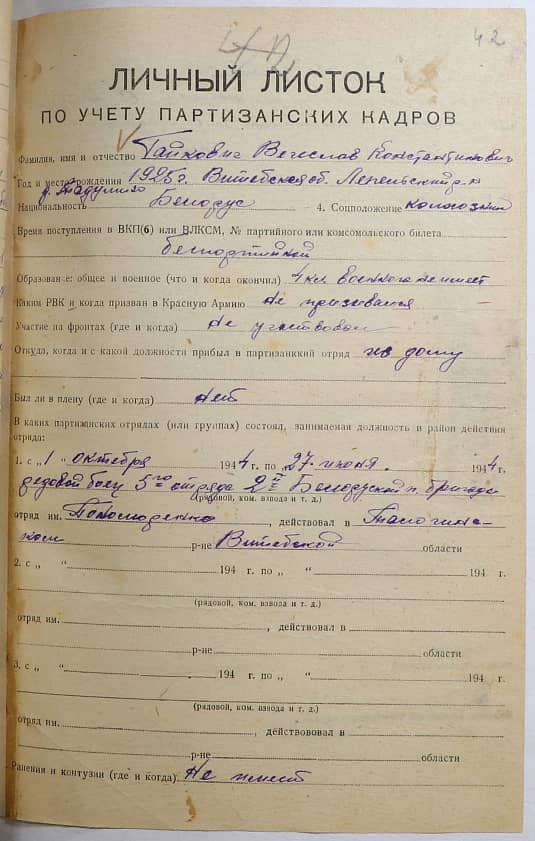 42
ЛИЧНЫЙ ЛИСТОК
ПО УЧЕТУ ПАРТИЗАНСКИХ КАДРОВ
Фамилия, имя и отчество Гайкович Вечеслав Константинович
Год и место рождения 1925г. Витебская об. Лепельский р-н
Национальность Белорус 4. Соцположение колхозник
Время поступления в ВКП(б) или ВЛКСМ, № партийного или комсомольского билета
беспартийной
Образование: общее и военное (что и когда окончил) 4 кл. военного не имеет
Каким РВК и когда призван в Красную Армию Не призывался
Участие на фронтах (где и когда) Не участвовал
Откуда, когда и с какой должности прибыл в партизанкий отряд из дому
Был ли в плену (где и когда) нет
В каких партизанских отрядах (или группах) состоял, занимаемая должность и район действия
отряда:
1. с „1 " октября 1944 г. по 27 июня 1944 г.
редовой боец 5го отряда 2й Белоруской п. бригады
(рядовой, ком. взвода и т. д.)
отряд им. Пономоденко, действовал в Талочинс-
ком р-не Витебской области
2. с „ " 194 г. по „ " 194 г.
(рядовой, ком. взвода и т. д.)
отряд им. , действовал в
р-не области
3. с „ " 194 г. по „ " 194 г.
(рядовой, ком. взвода и т. д.)
отряд им. , действововал в
р-не области
Ранения и контузии (где и когда) Не имеет